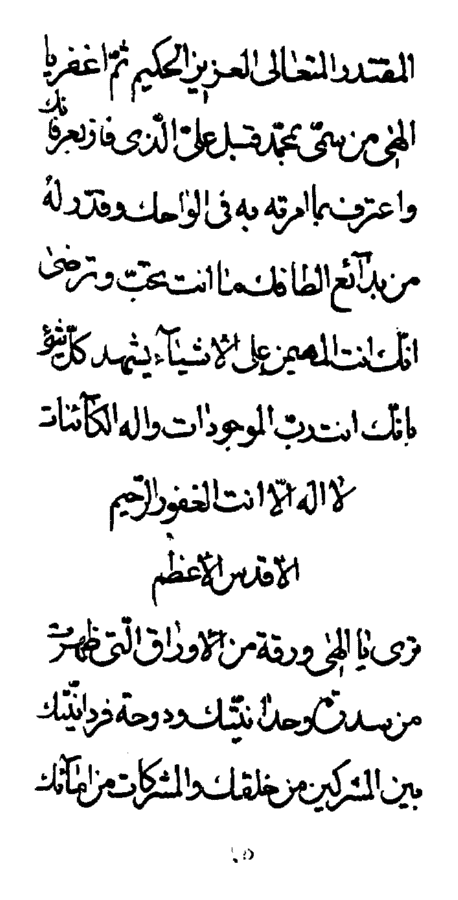 المقتدر المتعالى العزيز الحكيم ثمّ اغفر يا
الهى من سمّى بمحمّد قبل علىّ الّذى فاز بعرفانك
واعترف بما امرته به فى الواحك وقدّر له
من بدآئع الطافك ما انت تحبّ وترضى
انّك انت المهيمن على الاشيآء يشهد كلّ شىء
بانّك انت ربّ الموجودات واله الكآئنات
لا اله الّا انت الغفور الرّحيم
الاقدس الاعظم
ترى يا الهى ورقة من الاوراق الّتى ظهرت
من سدرة وحدانيّتك ودوحة فردانيّتك
بين المشركين من خلقك والمشركات من امآئك